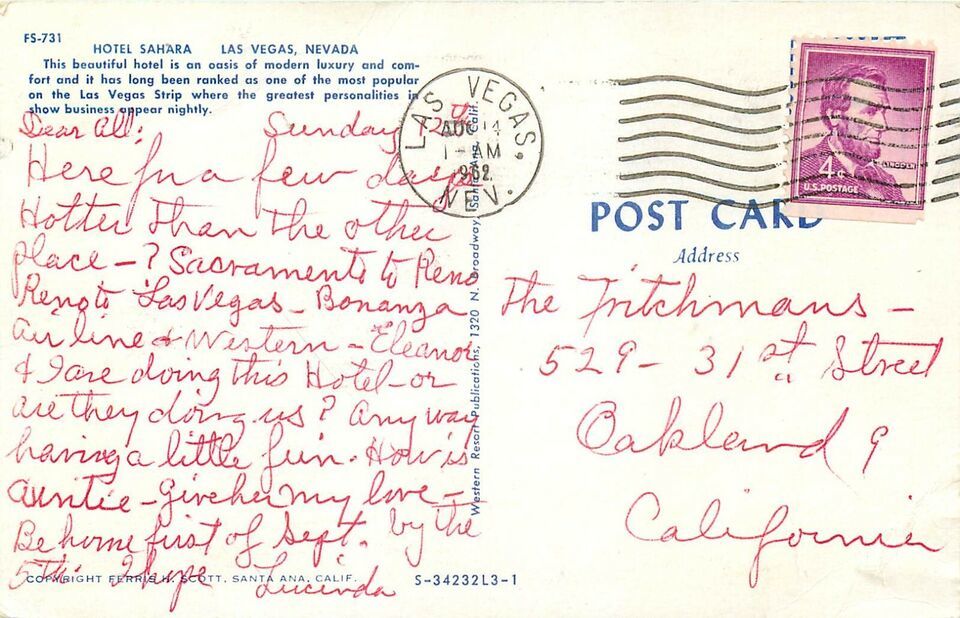 FS-731
HOTEL SAHARA LAS VEGAS, NEVADA
This beautiful hotel is an oasis of modern luxury and com-
fort and it has long been ranked as one of the most popular
on the Las Vegas Strip where the greatest personalities in
show business appear nightly.
Dear All: Sunday 12th
Here for a few days
Hotter than the other
place - ? Sacramento to Reno
Reno to Las Vegas - Bonanza
Air line & Western - Eleanor
& I are doing this Hotel - or
are they doing us? Anyway
having a little fun. How is
Auntie - Give her my love -
Be home first of Sept. by the
5th I hope
Lucinda
COPYRIGHT FERRIS H. SCOTT, SANTA ANA, CALIF.
S-34232L3-1
Western Resort Publications, 1320 N. Broadway, Santa Ana, Calif.
LAS VEGAS,
AUG 14
1 - AM
1962
NEV.
LINCOLN
4¢
U.S. POSTAGE
POST CARD
Address
The Fritchmans -
529 - 31st Street
Oakland 9
California